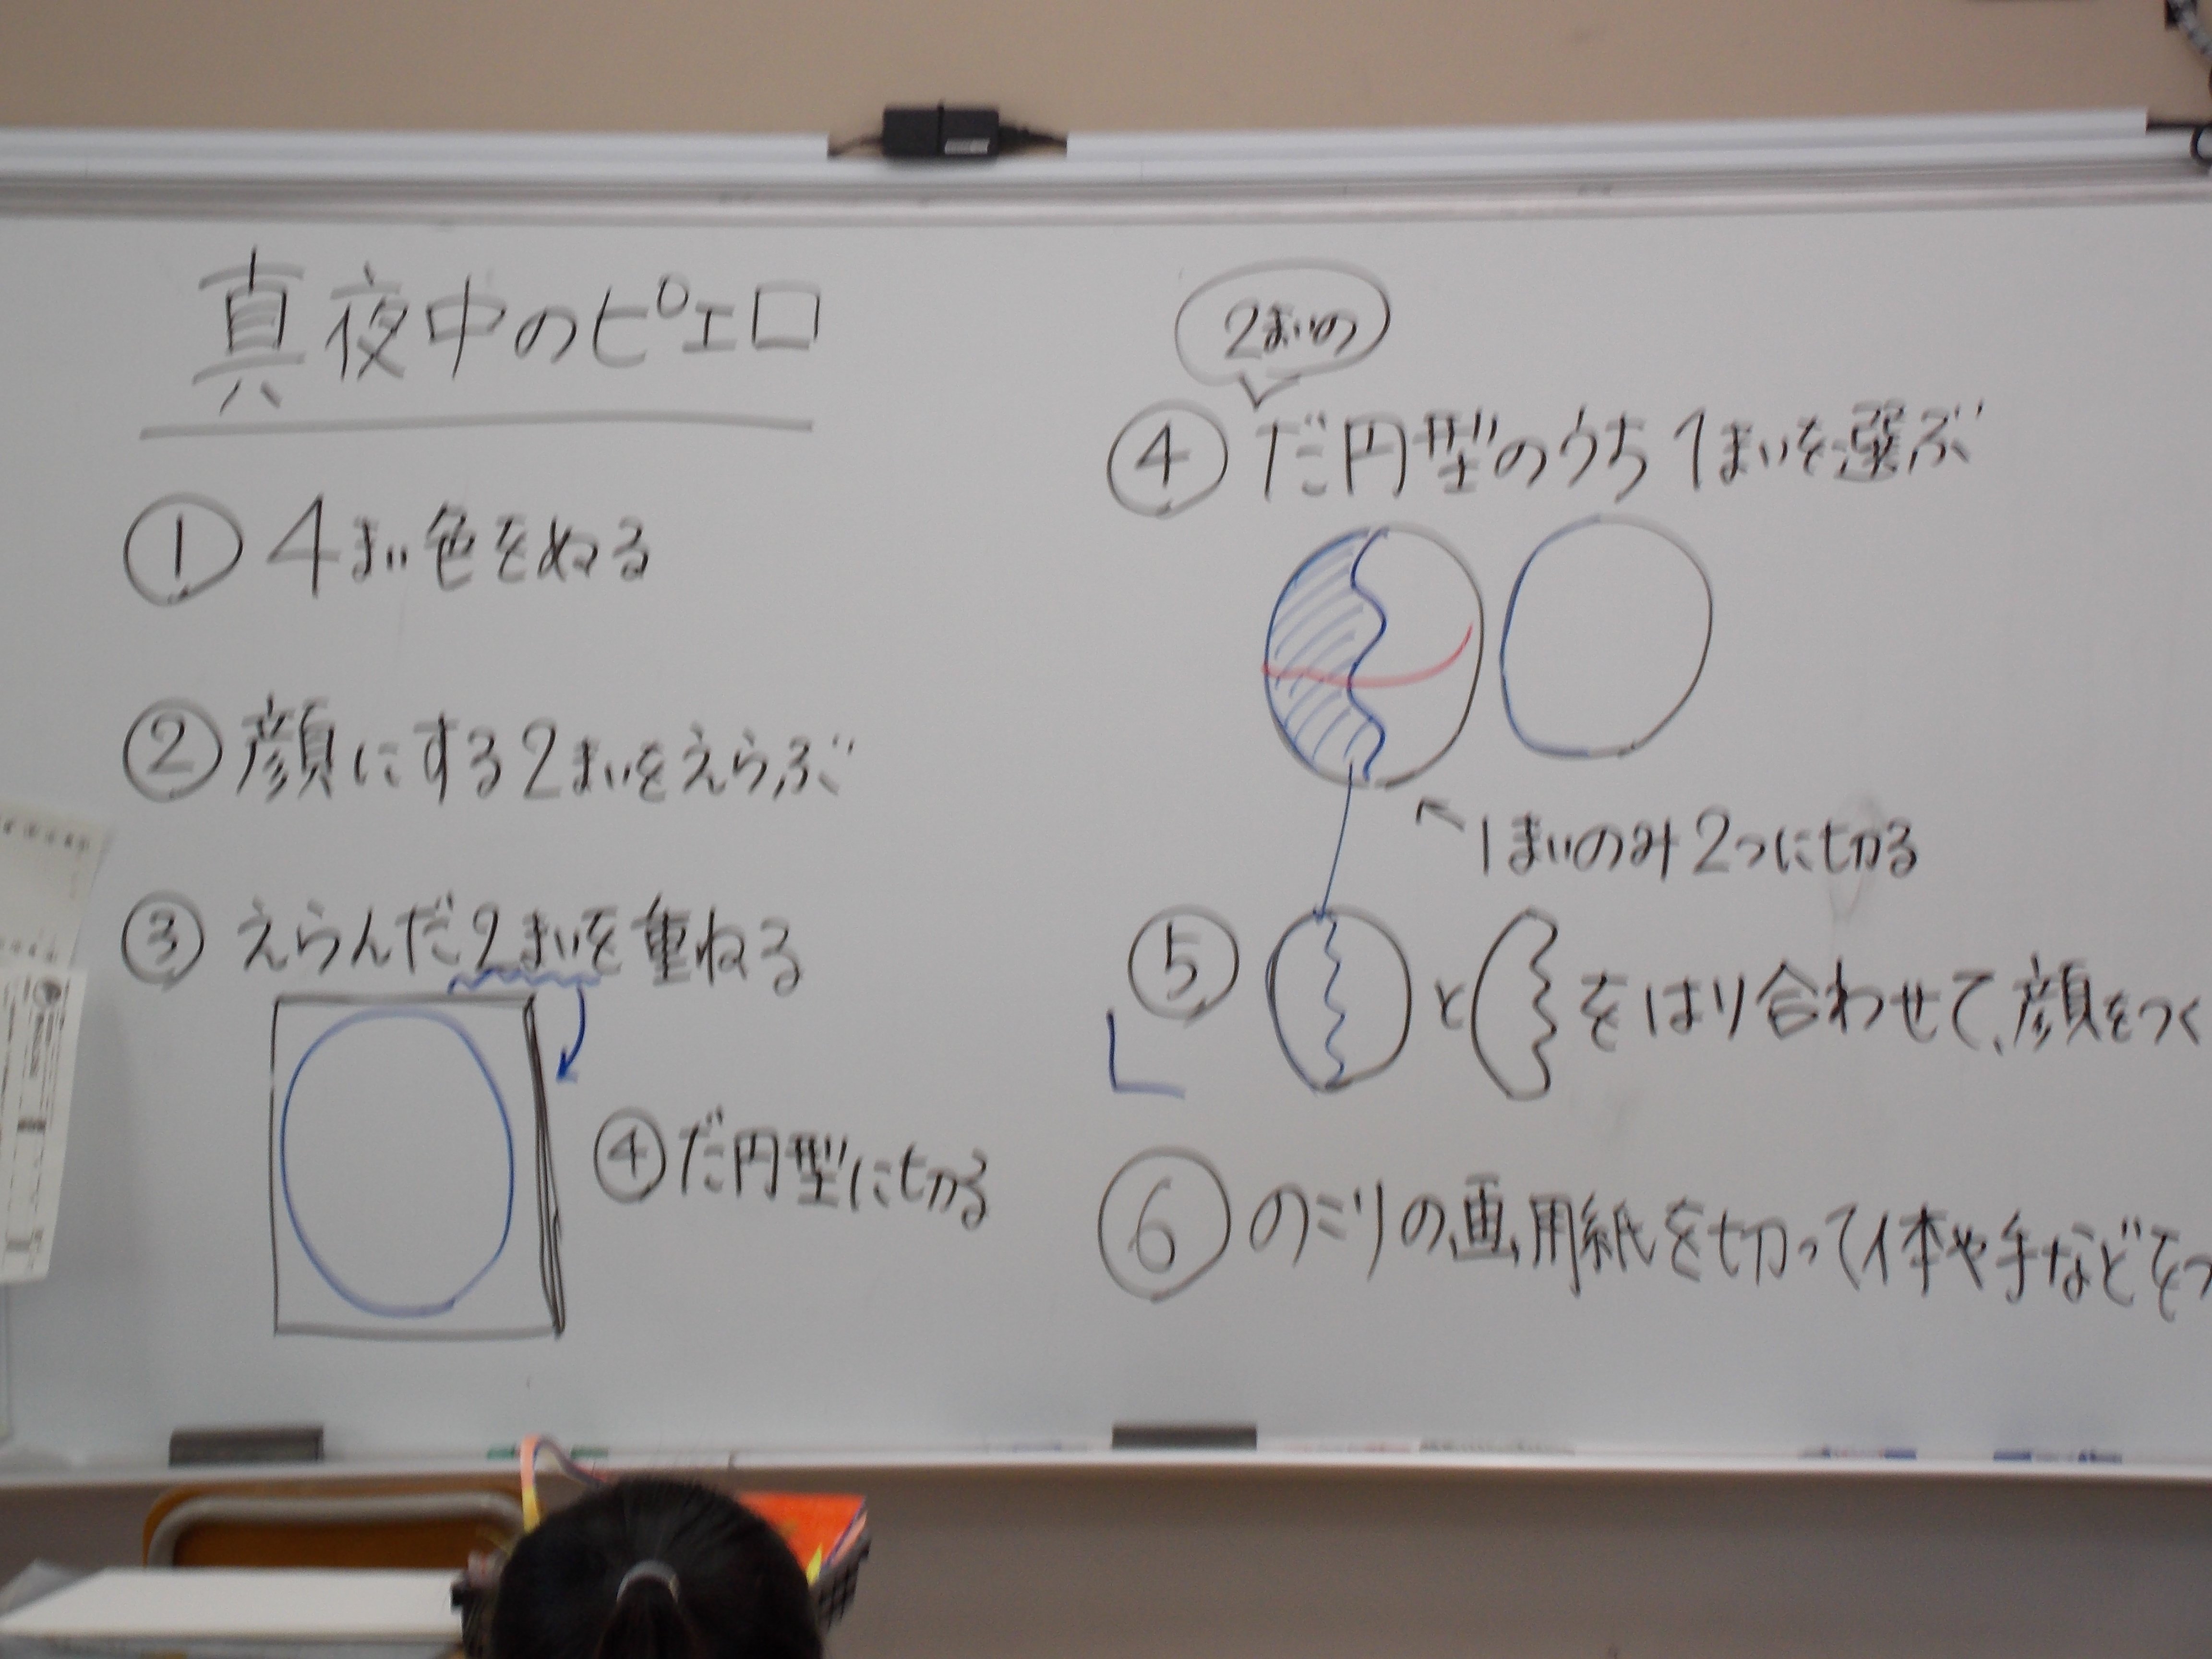 真夜中のピエロ
① 4まい色をぬる
② 顔にする2まいをえらぶ
③ えらんだ2まいを重ねる
④ だ円型に切る
2まいの
④ だ円型のうち1まいを選ぶ
1まいのみ2つに切る
⑤ と をはり合わせて、顔をつく
⑥ のこりの画用紙を切って体や手などをつ